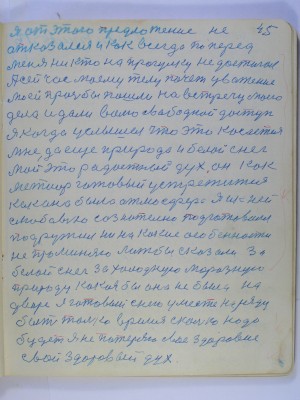 45
я от этого предложение не
отказался и как всегда по перед
меня никто на прогулку не
Я сейчас моему телу почет уважение
моей просьбы пошли на встречу моего
дела и дали волю свободной доступ
я когда услышал что это касается
мне, да еще природа и белой снег
мой это радостной дух, он как
готовый устремится
какая бы атмосфера я и с ней
с любовью сознательно подготовился
подружил ни на какие особенности
не променяю лиж бы сказали за
белой снег за холодную морозную
природу какая бы она не была на
дворе я готовый с нею уместе на ряду
быть только время сколько надо
будет я не потеряю свое здоровие
свой здоровый дух.